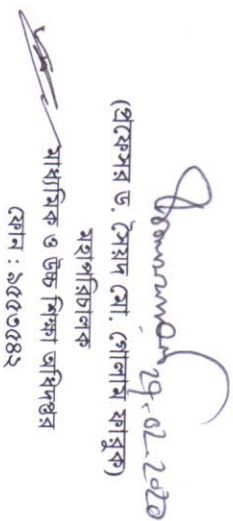 29.02.2020
(প্রফেসর ড. সৈয়দ মো. গোলাম ফারুক)
মহাপরিচালক
মাধ্যমিক ও উচ্চ শিক্ষা অধিদপ্তর
ফোন : ৯৫৫৩৫৪২